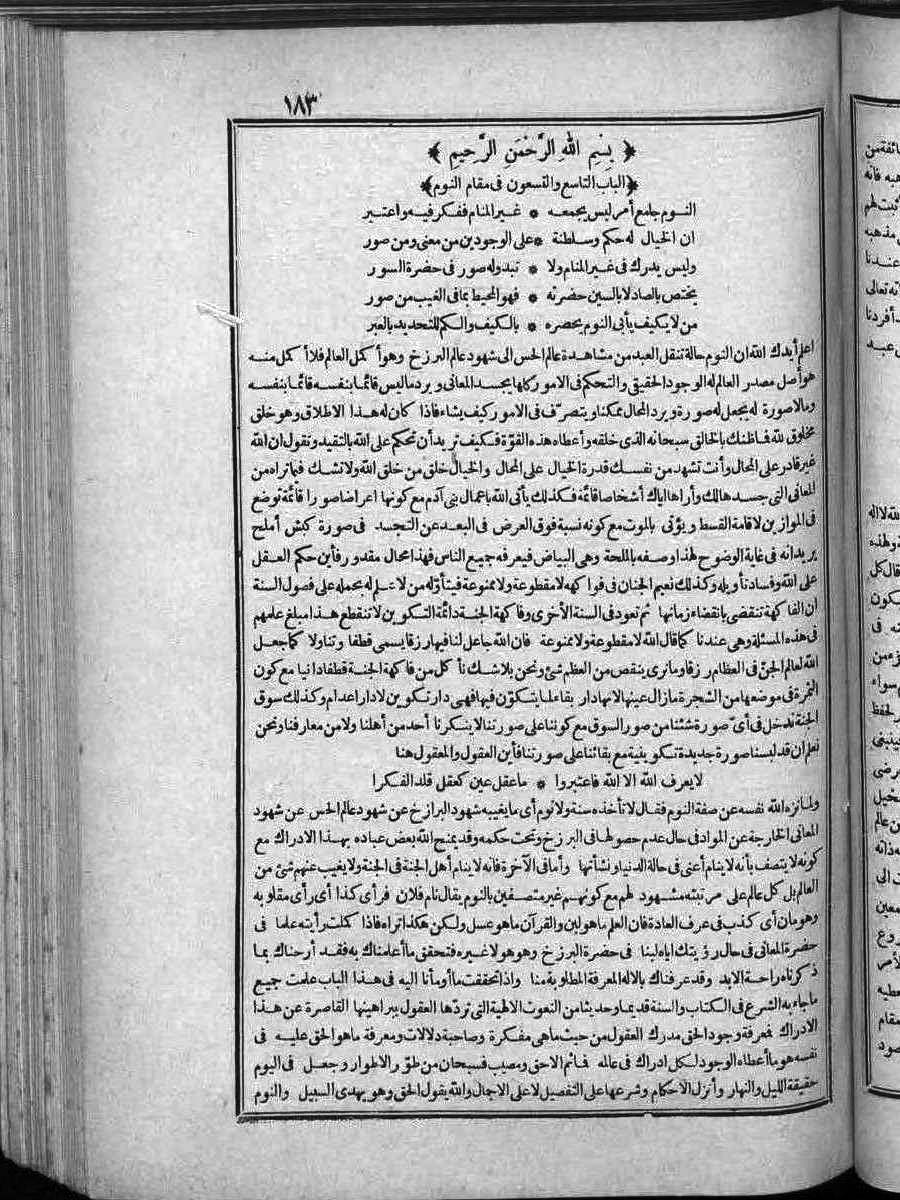 ١٨٣
﴿ بِسْمِ اللهِ الرَّحْمَنِ الرَّحِيمِ ﴾
﴿الباب التاسع والتسعون فى مقام النوم﴾
النوم جامع أمر ليس يجمعه * غير المنام ففكر فيه واعتبر
ان الخيال له حكم وسلطنة * على الوجودين من معنى ومن صور
وليس يدرك فى غير المنام ولا * تبدوله صور فى حضرة السور
يختص بالصاد لا بالسين حضرته * فهو المحيط بما فى الغيب من صور
من لا يكيف يأبى النوم يحصره * بالكيف والكم للتحديد بالعبر
اعلم أيدك الله ان النوم حالة تنقل العبد من مشاهدة عالم الحس الى شهود عالم البرزخ وهو أكمل العالم فلا أكمل منه
هو أصل مصدر العالم له الوجود الحقيقى والتحكم فى الامور كلها يجسد المعانى ويرد ما ليس قائما بنفسه قائما بنفسه
وما لا صورة له يجعل له صورة ويرد المحال ممكنا ويتصرّف فى الامور كيف يشاء فاذا كان له هذا الاطلاق وهو خلق
مخلوق لله فما ظنك بالخالق سبحانه الذى خلقه وأعطاه هذه القوّة فكيف تريد أن تحكم على الله بالتقيد وتقول ان الله
غير قادر على المحال وأنت تشهد من نفسك قدرة الخيال على المحال والخيال خلق من خلق الله ولا تشك فيما تراه من
المعانى التى جسدها لك وأراها اياك أشخاصا قائمة فكذلك يأتى الله باعمال بنى آدم مع كونها اعراضا صورا قائمة توضع
فى الموازين لاقامة القسط ويؤتى بالموت مع كونه نسبة فوق العرض فى البعد عن التجسد فى صورة كبش أملح
يريد انه فى غاية الوضوح لهذا وصفه بالملحة وهى البياض فيعرفه جميع الناس فهذا محال مقدور فأين حكم العقل
على الله وفساد تأويله وكذلك نعيم الجنان فى فواكهه لا مقطوعة ولا ممنوعة فيتأوّله من لا علم له بحمله على فصول السنة
ان الفاكهة تنقضى بانقضاء زمانها ثم تعود فى السنة الأخرى وفاكهة الجنة دائمة التكوين لا تنقطع هذا مبلغ علمهم
فى هذه المسئلة وهى عندنا كما قال الله لا مقطوعة ولا ممنوعة فان الله جاعل لنا فيها رزقا يسمى قطفا وتناولا كما جعل
الله لعالم الجنّ فى العظام رزقا وما نرى ينقص من العظم شئ ونحن بلا شك نأكل من فاكهة الجنة قطفا دانيا مع كون
الثمرة فى موضعها من الشجرة ما زال عينها لانها دار بقاء لما يتكوّن فيها فهى دار تكوين لا دار اعدام وكذلك سوق
الجنة ندخل فى أىّ صورة شئنا من صور السوق مع كوننا على صورتنا لا ينكرنا أحد من أهلنا ولا من معارفنا ونحن
نعلم ان قد لبسنا صورة جديدة تكوينية مع بقائنا على صورتنا فأين العقول والمعقول هنا
لا يعرف الله الا الله فاعتبروا * ما عقل عين كعقل قلد الفكرا
ولما نزه الله نفسه عن صفة النوم فقال لا تأخذه سنة ولا نوم أى ما يغيبه شهود البرازخ عن شهود عالم الحس عن شهود
المعانى الخارجة عن المواد فى حال عدم حصولها فى البرزخ وتحت حكمه وقد يمنح الله بعض عباده بهذا الادراك مع
كونه لا يتصف بأنه لا ينام أعنى فى حالة الدنيا ونشأتها وأما فى الآخرة فانه لا ينام أهل الجنة فى الجنة ولا يغيب عنهم شئ من
العالم بل كل عالم على مرتبته مشهود لهم مع كونهم غير متصفين بالنوم يقال نام فلان فرأى كذا أى رأى مقلوبه
وهو مان أى كذب فى عرف العادة فان العلم ما هو لبن والقرآن ما هو عسل ولكن هكذا تراه فاذا كملت رأيته علما فى
حضرة المعانى فى حال رؤيتك اياه لبنا فى حضرة البرزخ وهو هو لا غيره فتحقق ما أعلمناك به فقد أرحناك بما
ذكرناه راحة الابد وقد عرفناك بالاله المعرفة المطلوبة منا واذا تحققت ما أومأنا اليه فى هذا الباب علمت جميع
ما جاء به الشرع فى الكتاب والسنة قديما وحديثا من النعوت الالهية التى تردّها العقول ببراهينها القاصرة عن هذا
الادراك فمعرفة وجود الحق مدرك العقول من حيث ما هى مفكرة وصاحبة دلالات ومعرفة ما هو الحق عليه فى
نفسه هو ما أعطاه الوجود لكل ادراك فى عالمه فما ثم الا حق ومصيب فسبحان من طوّر الاطوار وجعل فى اليوم
حقيقة الليل والنهار وأنزل الاحكام وشرعها على التفصيل لا على الاجمال والله يقول الحق وهو يهدى السبيل والنوم